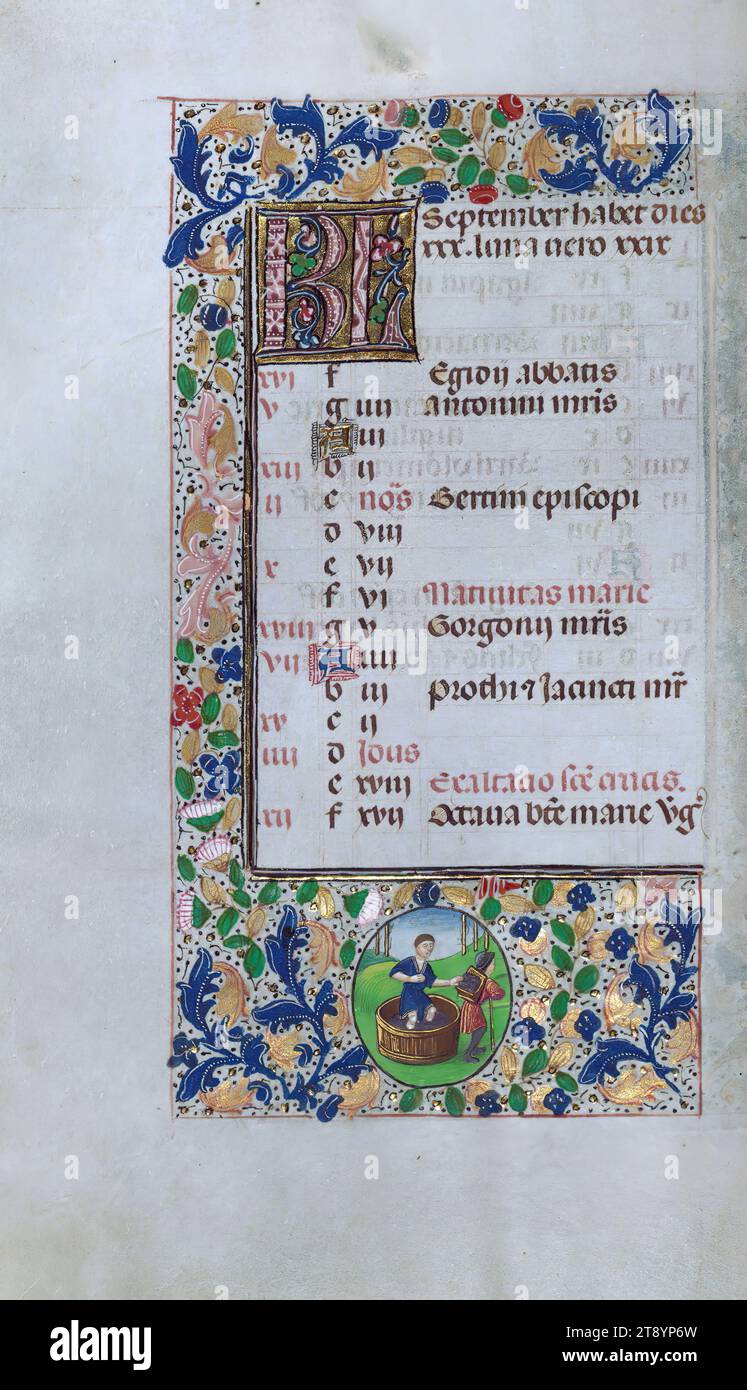 KL September habet dies
xxx. luna vero xxix
xvi f Egidij abbatis
v g iiii antonini mr̄is
A iii
xiii b ii
ii c noñs Bertini episcopi
d viii
x e vii
f vi Natiuitas marie
xviii g v Gorgonij mr̄is
vii A iiii
b iii Prothi ⁊ Jacincti mr̄
xv c ii
iiii d Idus
e xviii Exaltatio scē crucis.
xii f xvii Octaua btē marie v̄g
alamy
Image ID: 2T8YP6W
www.alamy.com